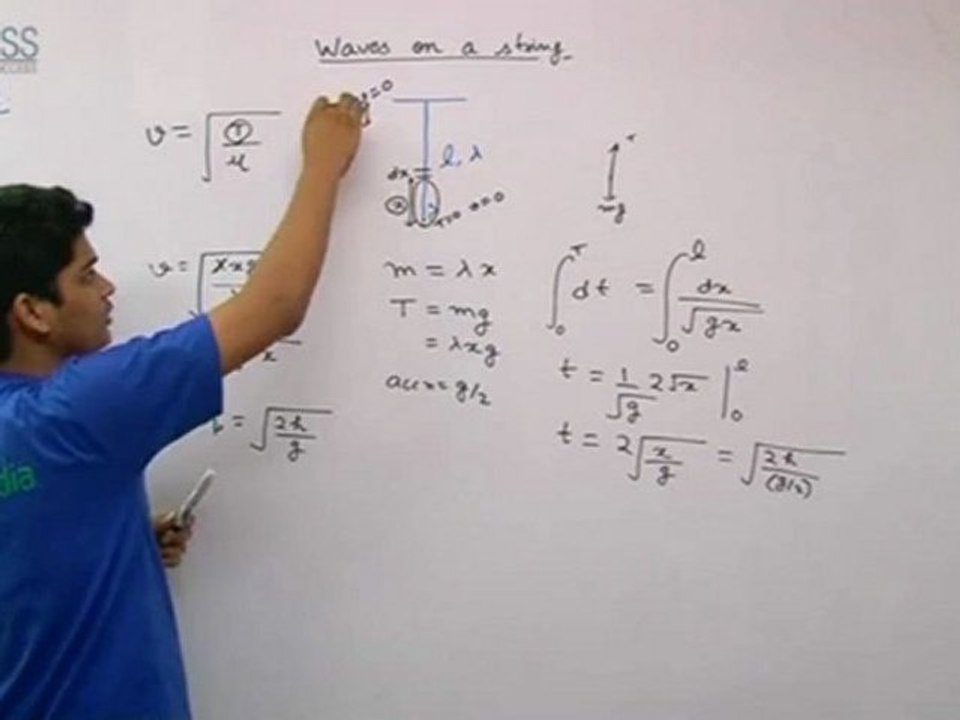 SS
Waves on a string
v = √(T/μ)
l, λ
dx
x
T=0 x=0
T
mg
m = λx
T = mg
= λxg
acc = g/2
∫₀ᵀ dt = ∫₀ˡ dx/√gx
t = 1/√g 2√x |₀ˡ
t = 2√(x/g) = √(2h/(g/2))
= √(2h/g)
dia